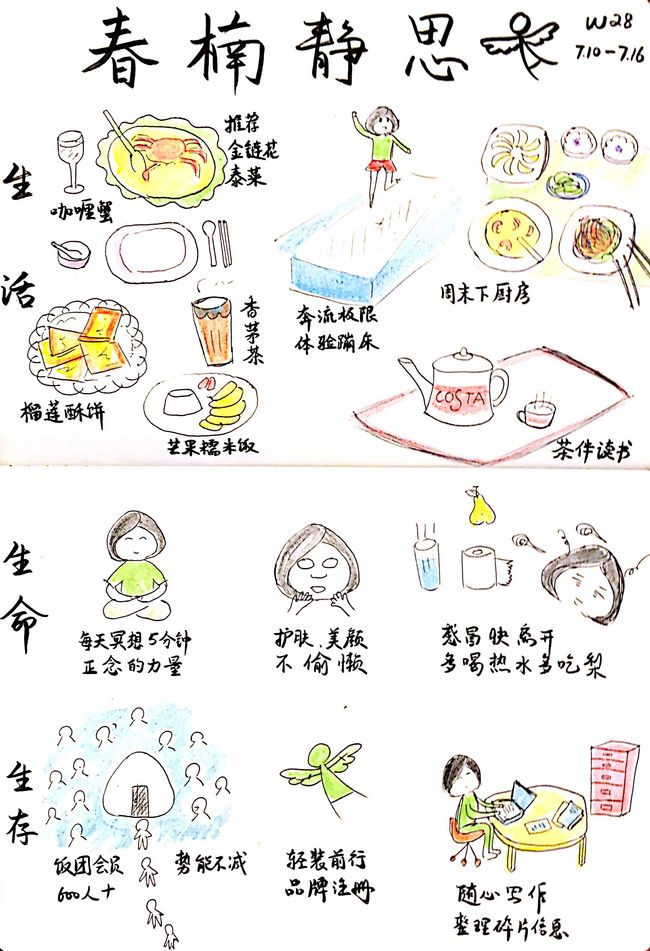 春楠静思
W28
7.10-7.16
生活
推荐
金链花
泰菜
咖喱蟹
榴莲酥饼
香茅茶
芒果糯米饭
奔流极限
体验蹦床
周末下厨房
COSTA
茶伴读书
生命
每天冥想5分钟
正念的力量
护肤、美颜
不偷懒
感冒快离开
多喝热水多吃梨
生存
饭团会员
600人+
势能不减
轻装前行
品牌注册
随心写作
整理碎片信息